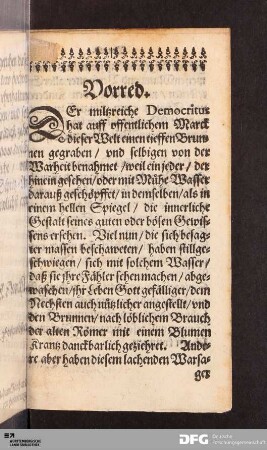 Vorred.
DEr miltzreiche Democritus
hat auff offentlichem Marck
dieser Welt einen tieffen Brun-
nen gegraben / vnd selbigen von der
Warheit benahmet / weil ein jeder / der
hinein gesehen / oder mit Mühe Wasser
darauß geschöpffet / in demselben / als in
einem hellen Spiegel / die innerliche
Gestalt seines guten oder bösen Gewis-
sens ersehen. Viel nun / die sich besag-
ter massen beschaweten / haben stillge-
schwiegen / sich mit solchem Wasser /
daß sie jhre Fähler sehen machen / abge-
waschen / jhr Leben Gott gefälliger / dem
Nechsten auch nützlicher angestellt / vnd
den Brunnen / nach löblichem Brauch
der alten Römer mit einem Blumen
Krantz danckbarlich geziehret. Ande-
re aber haben diesem lachenden Warsa-
ger
WÜRTTEMBERGISCHE
LANDESBIBLIOTHEK
DFG Deutsche
Forschungsgemeinschaft